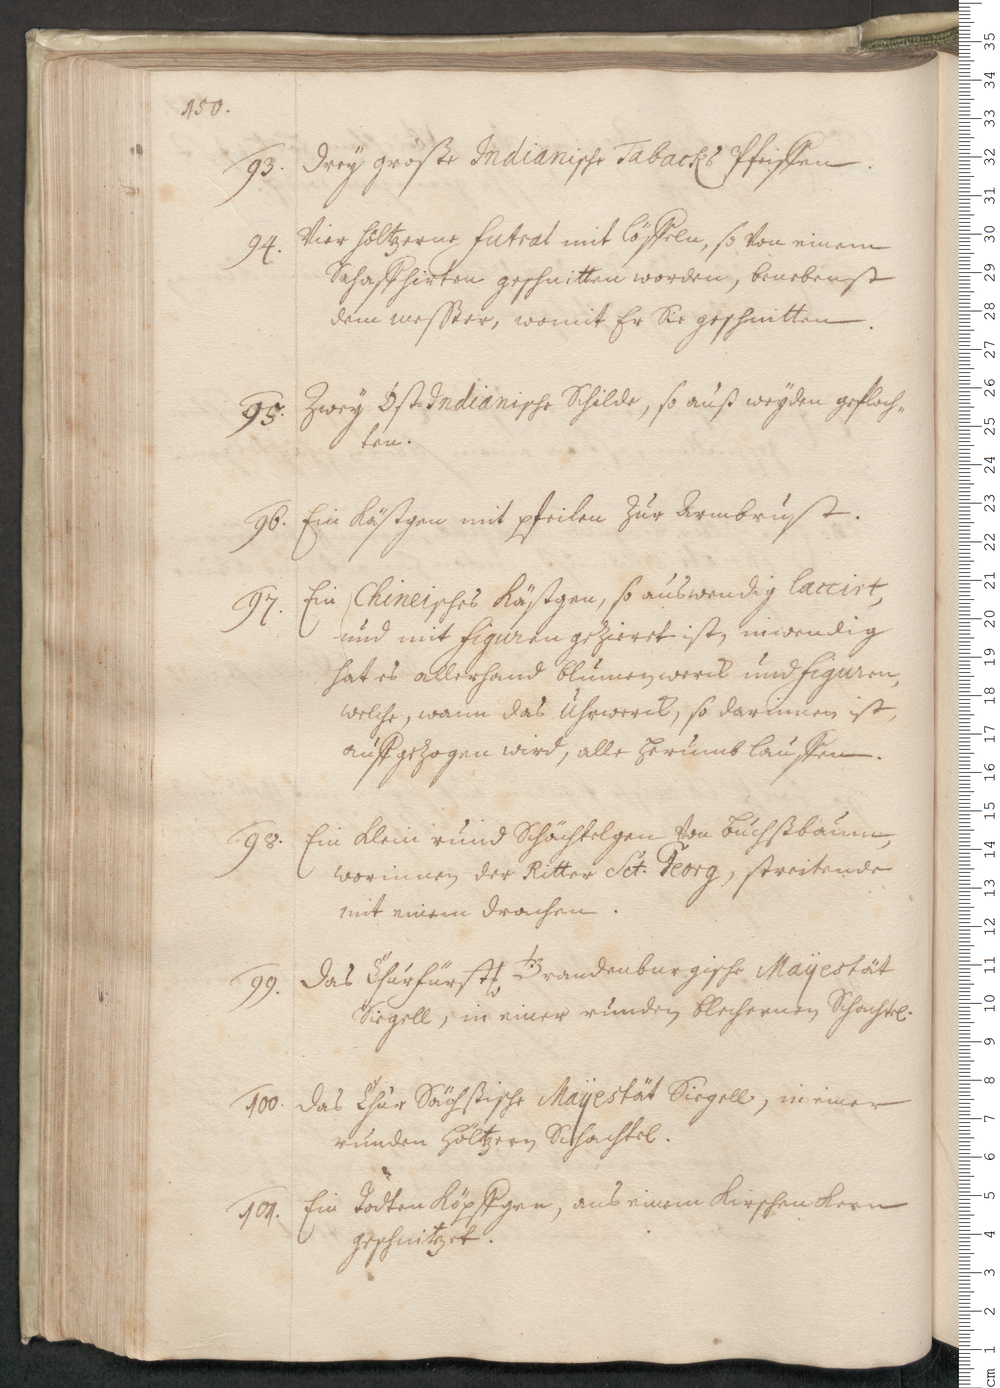 150.
93. Drey große Indianische Tabacks Pfeiffen.
94. Vier höltzerne Futral mit Löffeln, so von einem
Schaffhirten geschnitten worden, benebenst
dem messer, womit Er Sie geschnitten.
95. Zwey Ost-Indianische Schilde, so auß weyden gefloch„
ten.
96. Ein Kästgen mit pfeilen zur Armbrust.
97. Ein Chineisches Kästgen, so auswendig laccirt,
und mit figuren gezieret ist, inwendig
hat es allerhand blumenwerck und figuren,
welche, wann das Uhrwerck, so darinnen ist,
auffgezogen wird, alle herumb lauffen.
98. Ein klein rund Schächtelgen von buchßbaum,
worinnen der Ritter Sct. Georg, streitende
mit einem drachen.
99. Das Churfürstl. Brandenburgische Mayestät
Siegell, in einer runden blechernen Schachtel.
100. Das Chur Sächßische Mayestät Siegell, in einer
runden höltzern Schachtel.
101. Ein Todten Köpffgen, aus einem Kirschen Kern
geschnitzet.
35
34
33
32
31
30
29
28
27
26
25
24
23
22
21
20
19
18
17
16
15
14
13
12
11
10
9
8
7
6
5
4
3
2
1
cm